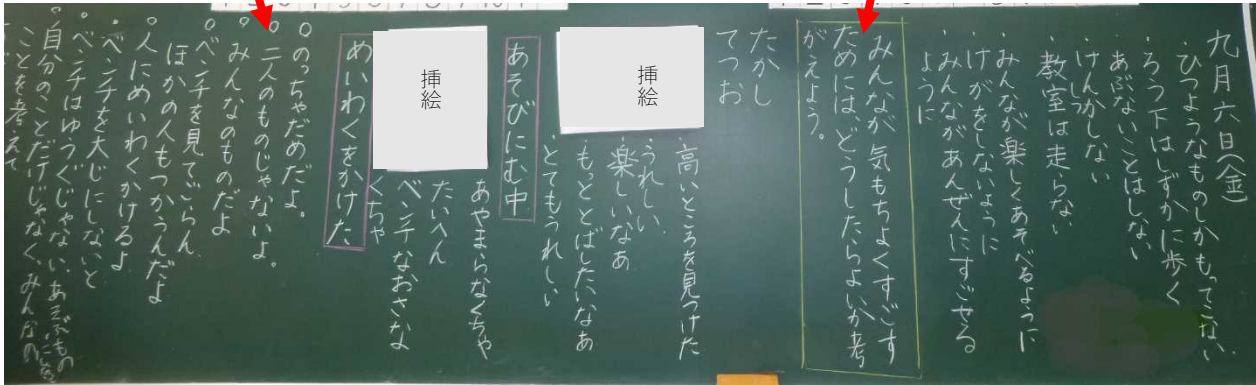 九月六日(金)
・ひつようなものしかもってこない
・ろう下はしずかに歩く
・あぶないことはしない
・けんかしない
・教室は走らない
・みんなが楽しくあそべるように
・けがをしないように
・みんながあんぜんにすごせる
ように
みんなが気もちよくすごす
ためには、どうしたらよいか考
がえよう。
たかし
てつお
挿絵
高いところを見つけた
うれしい
・楽しいなあ
・もっととばしたいなあ
・とてもうれしい
あそびにむ中
挿絵
あやまらなくちゃ
たいへん
ベンチなおさな
くちゃ
めいわくをかけた
○のっちゃだめだよ。
○二人のものじゃないよ。
○みんなのものだよ
○ベンチを見てごらん。
ほかの人もつかうんだよ
○人にめいわくかけるよ
・ベンチを大じにしないと
・ベンチはゆうぐじゃない。あそぶもの
・自分のことだけじゃなくみんなの
ことを考えて